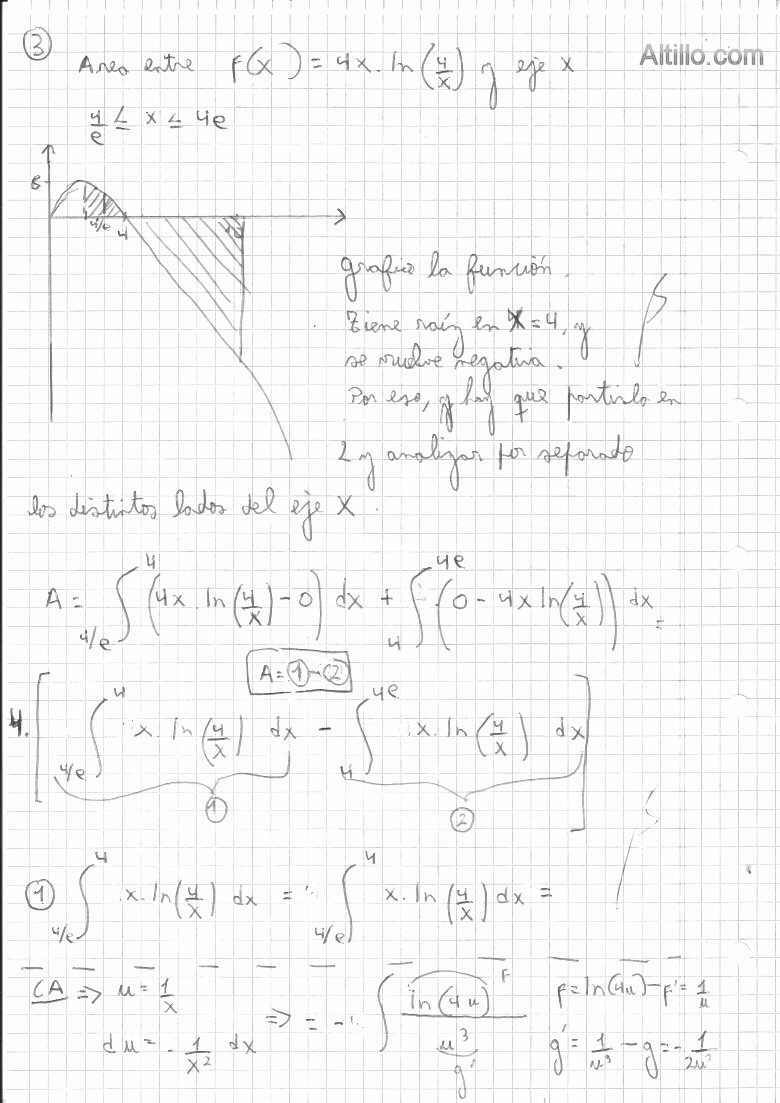 ③ Area entre F(x) = 4x. ln(4/x) y eje x
Altillo.com
4/e ≤ x ≤ 4e
4/e 4
grafico la función.
Tiene raíz en x=4, y
se vuelve negativa.
Por eso, y hay que partirlo en
2 y analizar por separado
los distintos lados del eje X.
A = ∫_{4/e}^{4} (4x. ln(4/x) - 0) dx + ∫_{4}^{4e} (0 - 4x ln(4/x)) dx =
A = ① - ②
4. [ ∫_{4/e}^{4} x. ln(4/x) dx - ∫_{4}^{4e} x. ln(4/x) dx ]
① ②
① ∫_{4/e}^{4} x. ln(4/x) dx = ∫_{4/e}^{4} x. ln(4/x) dx =
CA ⇒ u = 1/x ⇒ = - ∫ ln(4u) / u³ F F = ln(4u) - F' = 1/u
du = - 1/x² dx g' g' = 1/u³ - g = - 1/2u²